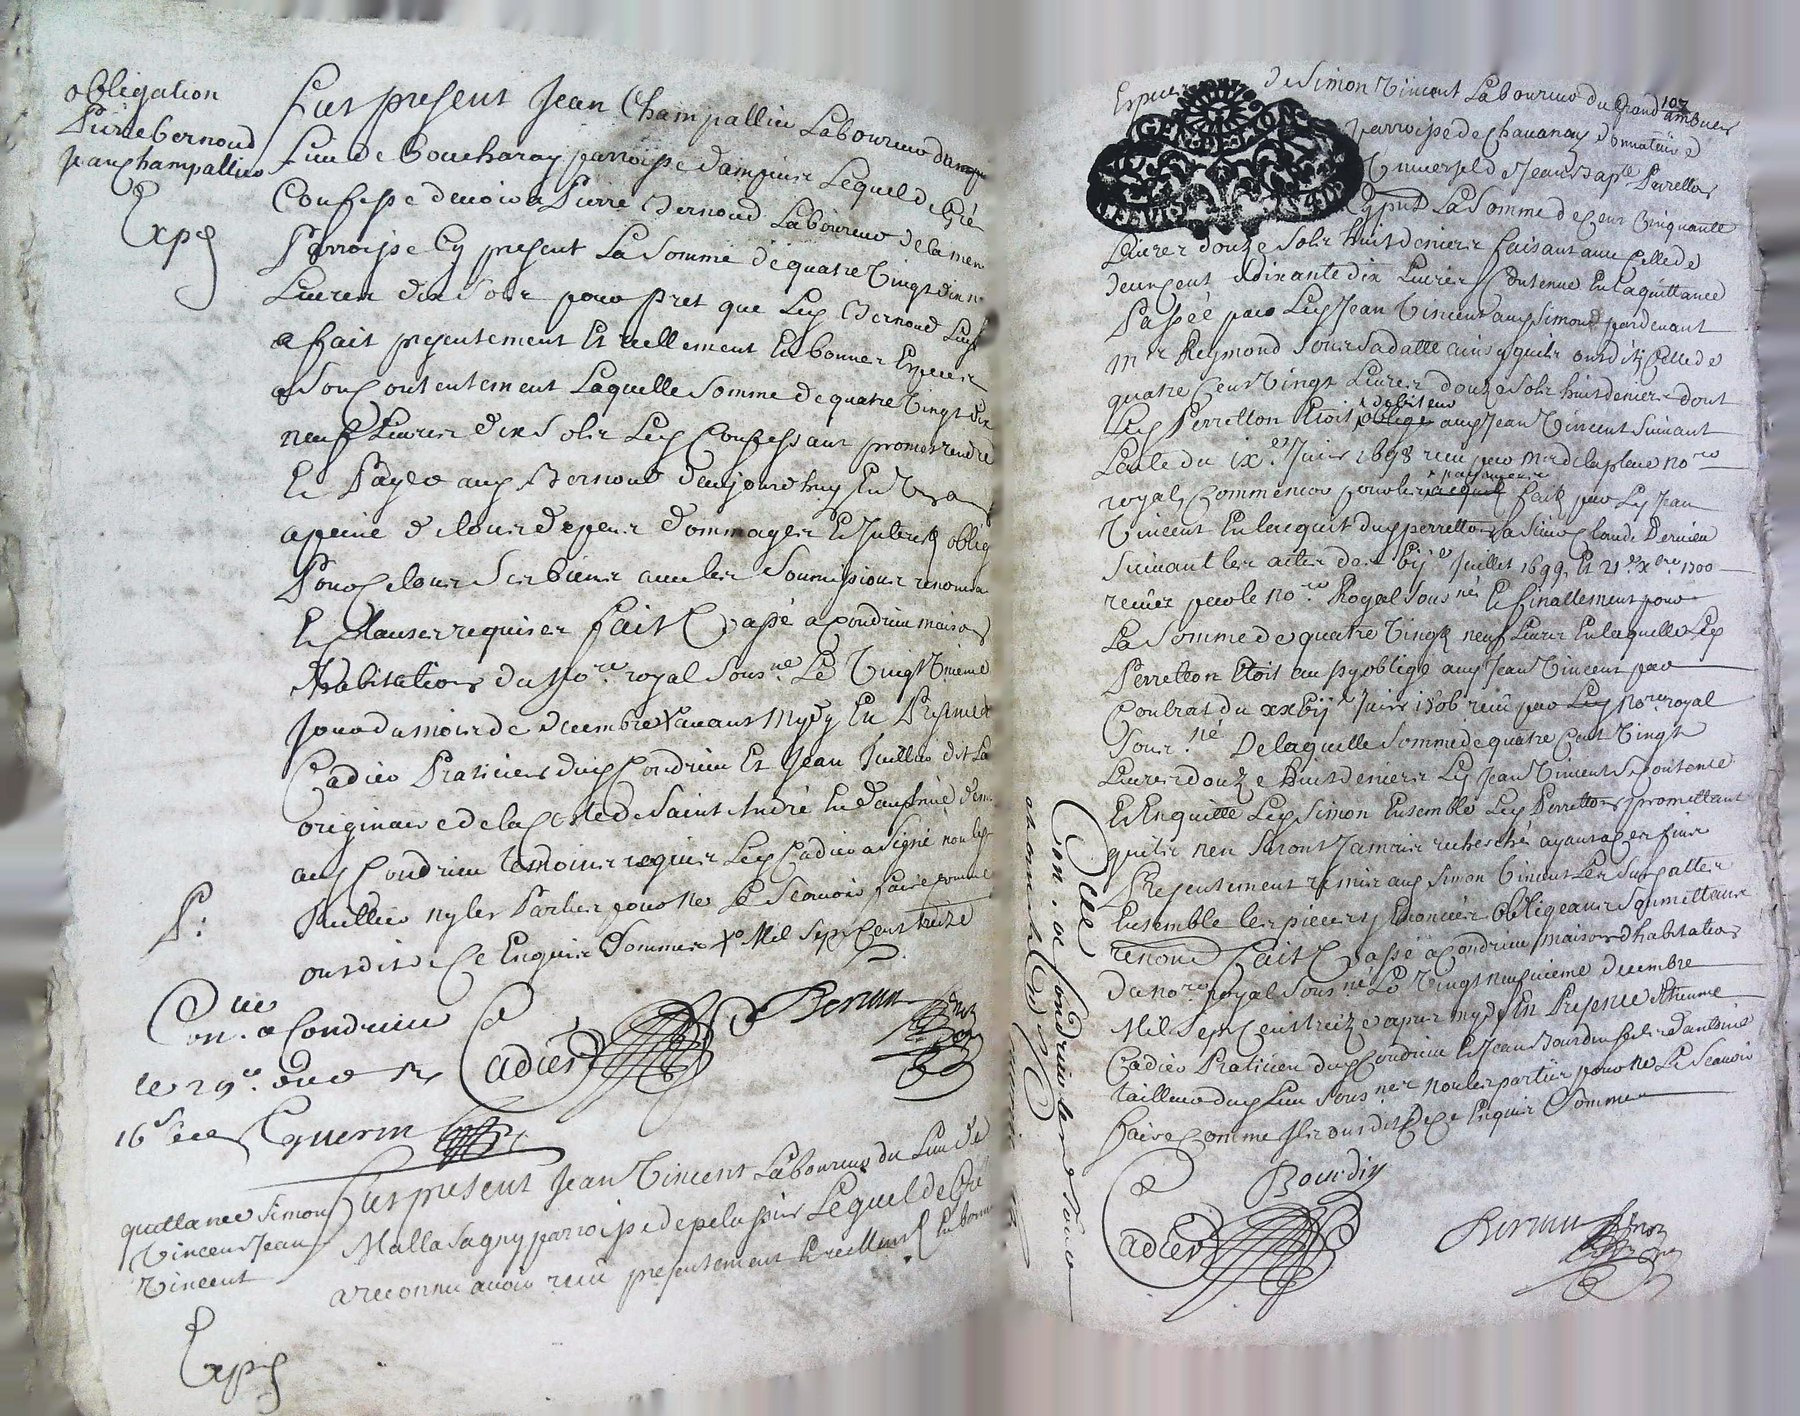 obligation
Pierre bernoud
Jean Champallier
Expé
Fut present Jean Champallier Laboureur du
Lieu de Boucharay parroisse dampuis Lequel de Gré
Confesse devoir a Pierre Bernoud Laboureur de la mem
Parroisse Cy present La Somme de quatre Vingt dix n
Livres dix Solz pour pret que Led Bernoud Luy
a fait presentement Et reellement En bonnes Especes
a Son Contentement Laquelle Somme de quatre Vingt dix
neuf Livres dix Solz Led Confessant promet rendre
Et Payer aud Bernoud daujourdhuy En Un an
a peine de tous depens dommages Et Interestz oblig
Pour Ce tous Ses biens avec les Soumissions renoncia
Et Clauses requises fait et Passé a Condrieu maison
dhabitation du No.re royal Sous.né Le Vingt Unieme
Jour du mois de decembre avant Mydy En Presence
Cadier Praticien dud Condrieu Et Jean Juillier dit La
originaire de la Coste Saint André En Daufiné dem.
aud Condrieu temoins requis Led Cadier a Signé non led
Juillier ny les Parties pour ne Le Scavoir faire comme
ont dit de Ce Enquis Sommes Mil Sept Cent treize
P:
Con.lé a Condrieu
le 29.e
16 s
Cadier
guerin
quittance Simon
Vincent Jean
Vincent
Expé
Fut present Jean Vincent Laboureur du Lieu de
Mallasagny parroisse de pelussin Lequel de Gré
a reconnu avoir receu presentement Et reellem.t En bonnes
107
Especes de Simon Vincent Laboureur du Grand ambuen
parroisse de Chavanay donnataire
Universel de Jean Bap.te Perretton
Cy pnt La Somme de Cent Cinquante
Livres douze Solz huit deniers faisant avec Celle de
deux Cent Soixante dix Livres Contenue En la quittance
Passée par Led Jean Vincent aud Simon pardevant
m.re Reymond Sous Sa datte ainsy quilz ont dit Celle de
quatre Cent Vingt Livres douze Solz huit deniers dont
debiteur
Led Perretton Etoit obligé aud Jean Vincent Suivant
Lacte du ix.e Juin 1698 receu par m.e delapleve no.re
royal Comme
payement
fait par Led Jean
Vincent En lacquit dud perretton a Sieur Claude Dervieu
Suivant les actes des bij.e Juillet 1699, Et 21.e Xbre 1700
receus par le no.re Royal Sous.né Et finallement pour
La Somme de quatre Vingt neuf Livres En laquelle Led
Perretton Etoit aussy obligé aud Jean Vincent par
Contrat du xxbij.e Juin 1706 receu par Led No.re royal
Sous.né De laquelle Somme de quatre Cent Vingt
Livres douze huit deniers Led Jean Vincent Se Contente
Et En quitte Led Simon Ensemble Led Perretton promettant
quilz nen Seront Jamais recherché ayant a Ces fins
Presentement remis aud Simon Vincent Les Susd actes
Ensemble les pieces y Enoncées Obligeant Soumettant
renond fait et Passé a Condrieu maison dhabitation
du no.re royal Sous.né Le Vingt neufvieme decembre
Mil Sept Cent treize apres mydy En Presence dEtienne
Cadier Praticien dud Condrieu Et Jean Bourdin fils dantoine
tailleur dud Lieu Sous.nes non les parties pour ne Le Scavoir
faire Comme Ilz ont dit de Ce Enquis Sommes
Cadier
Bourdin
Con. a Condrieu le